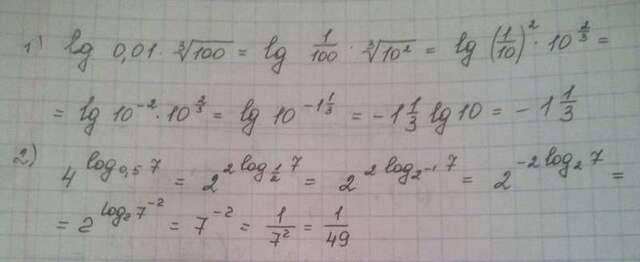 1) lg 0,01 · ∛100 = lg 1/100 · ∛10² = lg (1/10)² · 10^(2/3) =
= lg 10⁻² · 10^(2/3) = lg 10^(-1 1/3) = -1 1/3 lg 10 = -1 1/3
2) 4^(log_{0,5} 7) = 2^(2 log_{1/2} 7) = 2^(2 log_{2⁻¹} 7) = 2^(-2 log_2 7) =
= 2^(log_2 7⁻²) = 7⁻² = 1/7² = 1/49